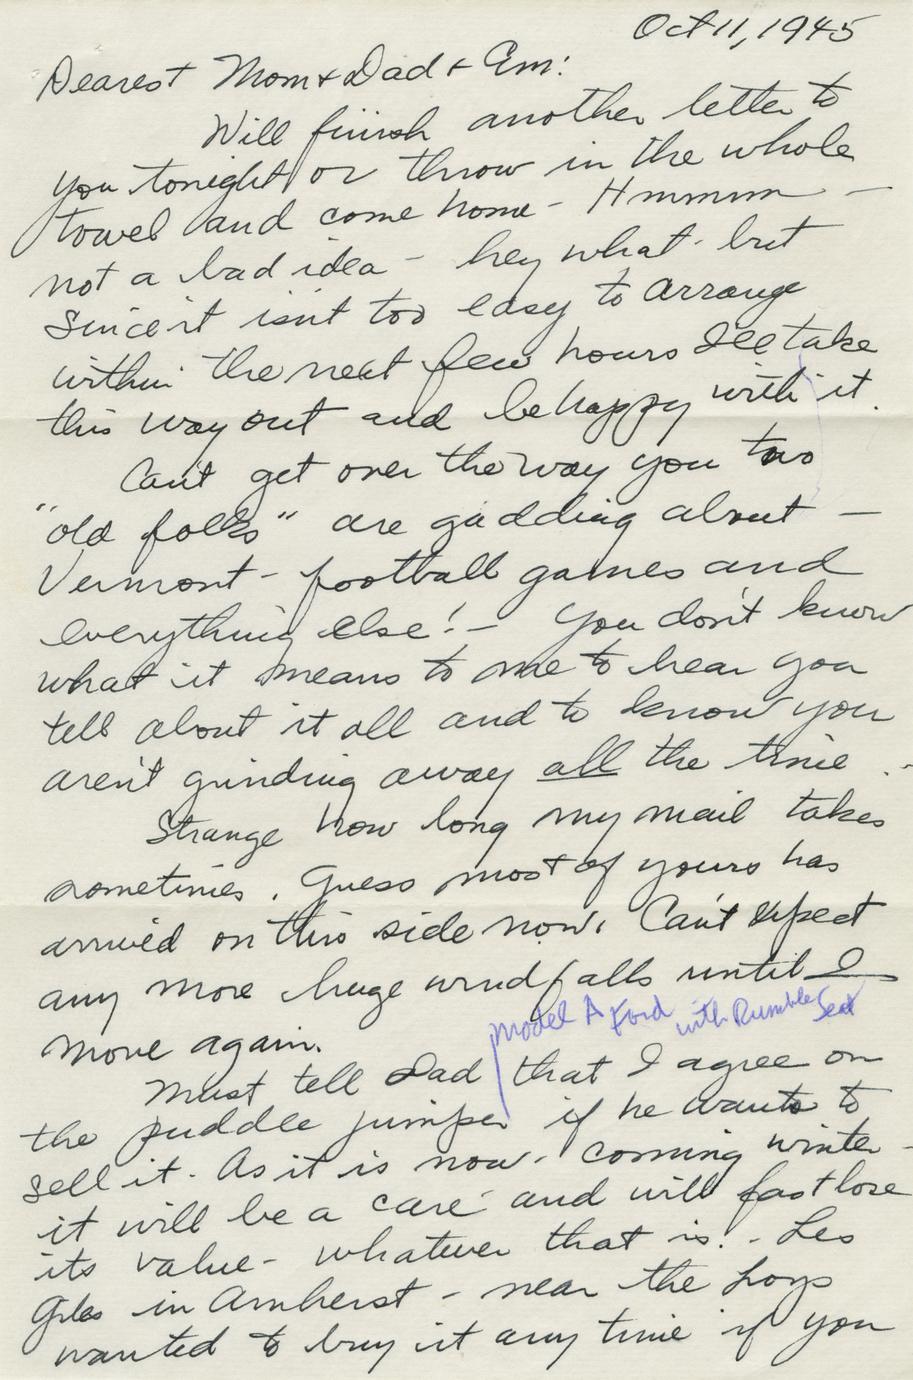 Oct 11, 1945
Dearest Mom & Dad & Em:
Will finish another letter to
you tonight or throw in the whole
towel and come home - Hmmmm -
not a bad idea - hey what - but
Since it isn't too easy to arrange
within the next few hours I'll take
this way out and be happy with it.
Can't get over the way you two
"old folks" are gadding about -
Vermont - football games and
everything else! - You don't know
what it means to me to hear you
tell about it all and to know you
aren't grinding away all the time .-
Strange how long my mail takes
sometimes. Guess most of yours has
arrived on this side now. Can't expect
any more huge windfalls until I
move again.
Model A Ford with Rumble Seat
Must tell Dad that I agree on
the puddle jumper if he wants to
sell it. As it is now - coming winter -
it will be a care - and will fast lose
its value - whatever that is! - Les
in Amherst - near the
wanted to buy it any time if you